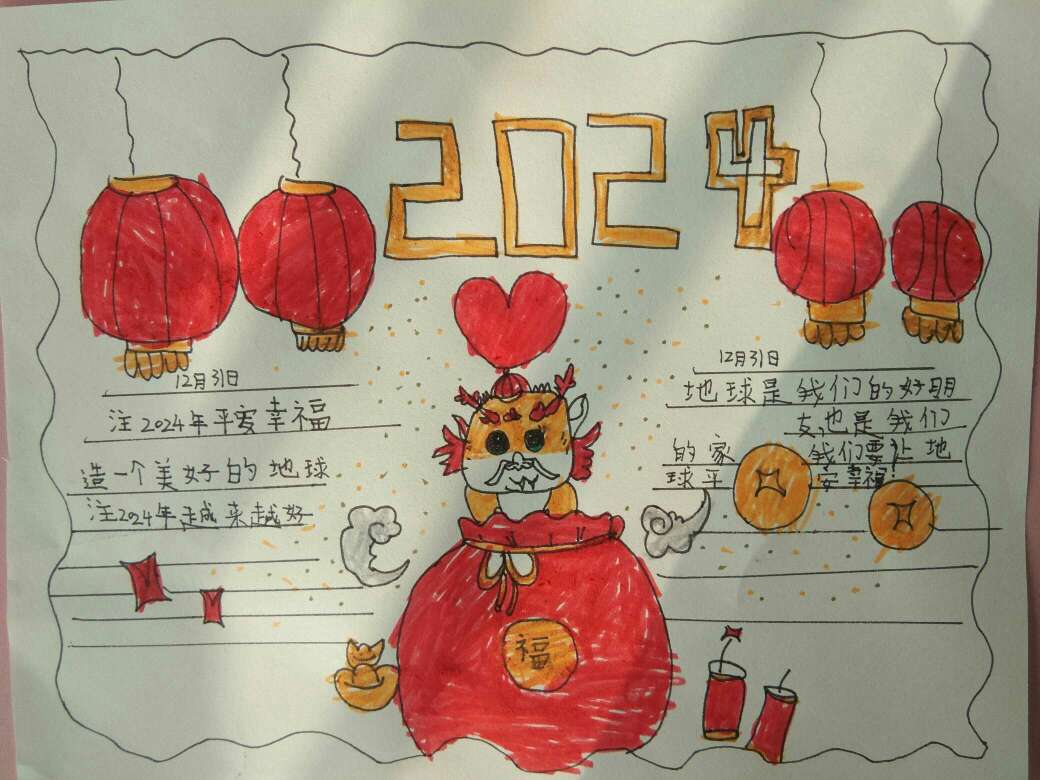 2024
12月31日
注2024年平安幸福
造一个美好的地球
注2024年越来越好
12月31日
地球是我们的好朋
友,也是我们
的家 我们要让地
球平 安幸福!
福